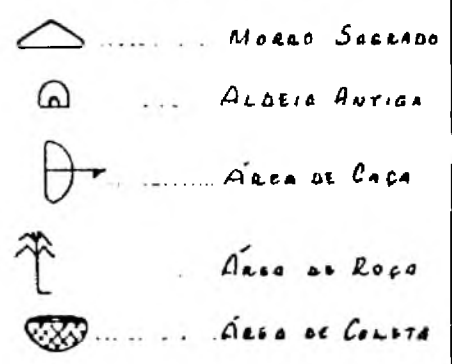 MORRO SAGRADO
ALDEIA ANTIGA
ÁREA DE CAÇA
ÁREA DE ROÇA
ÁREA DE COLETA